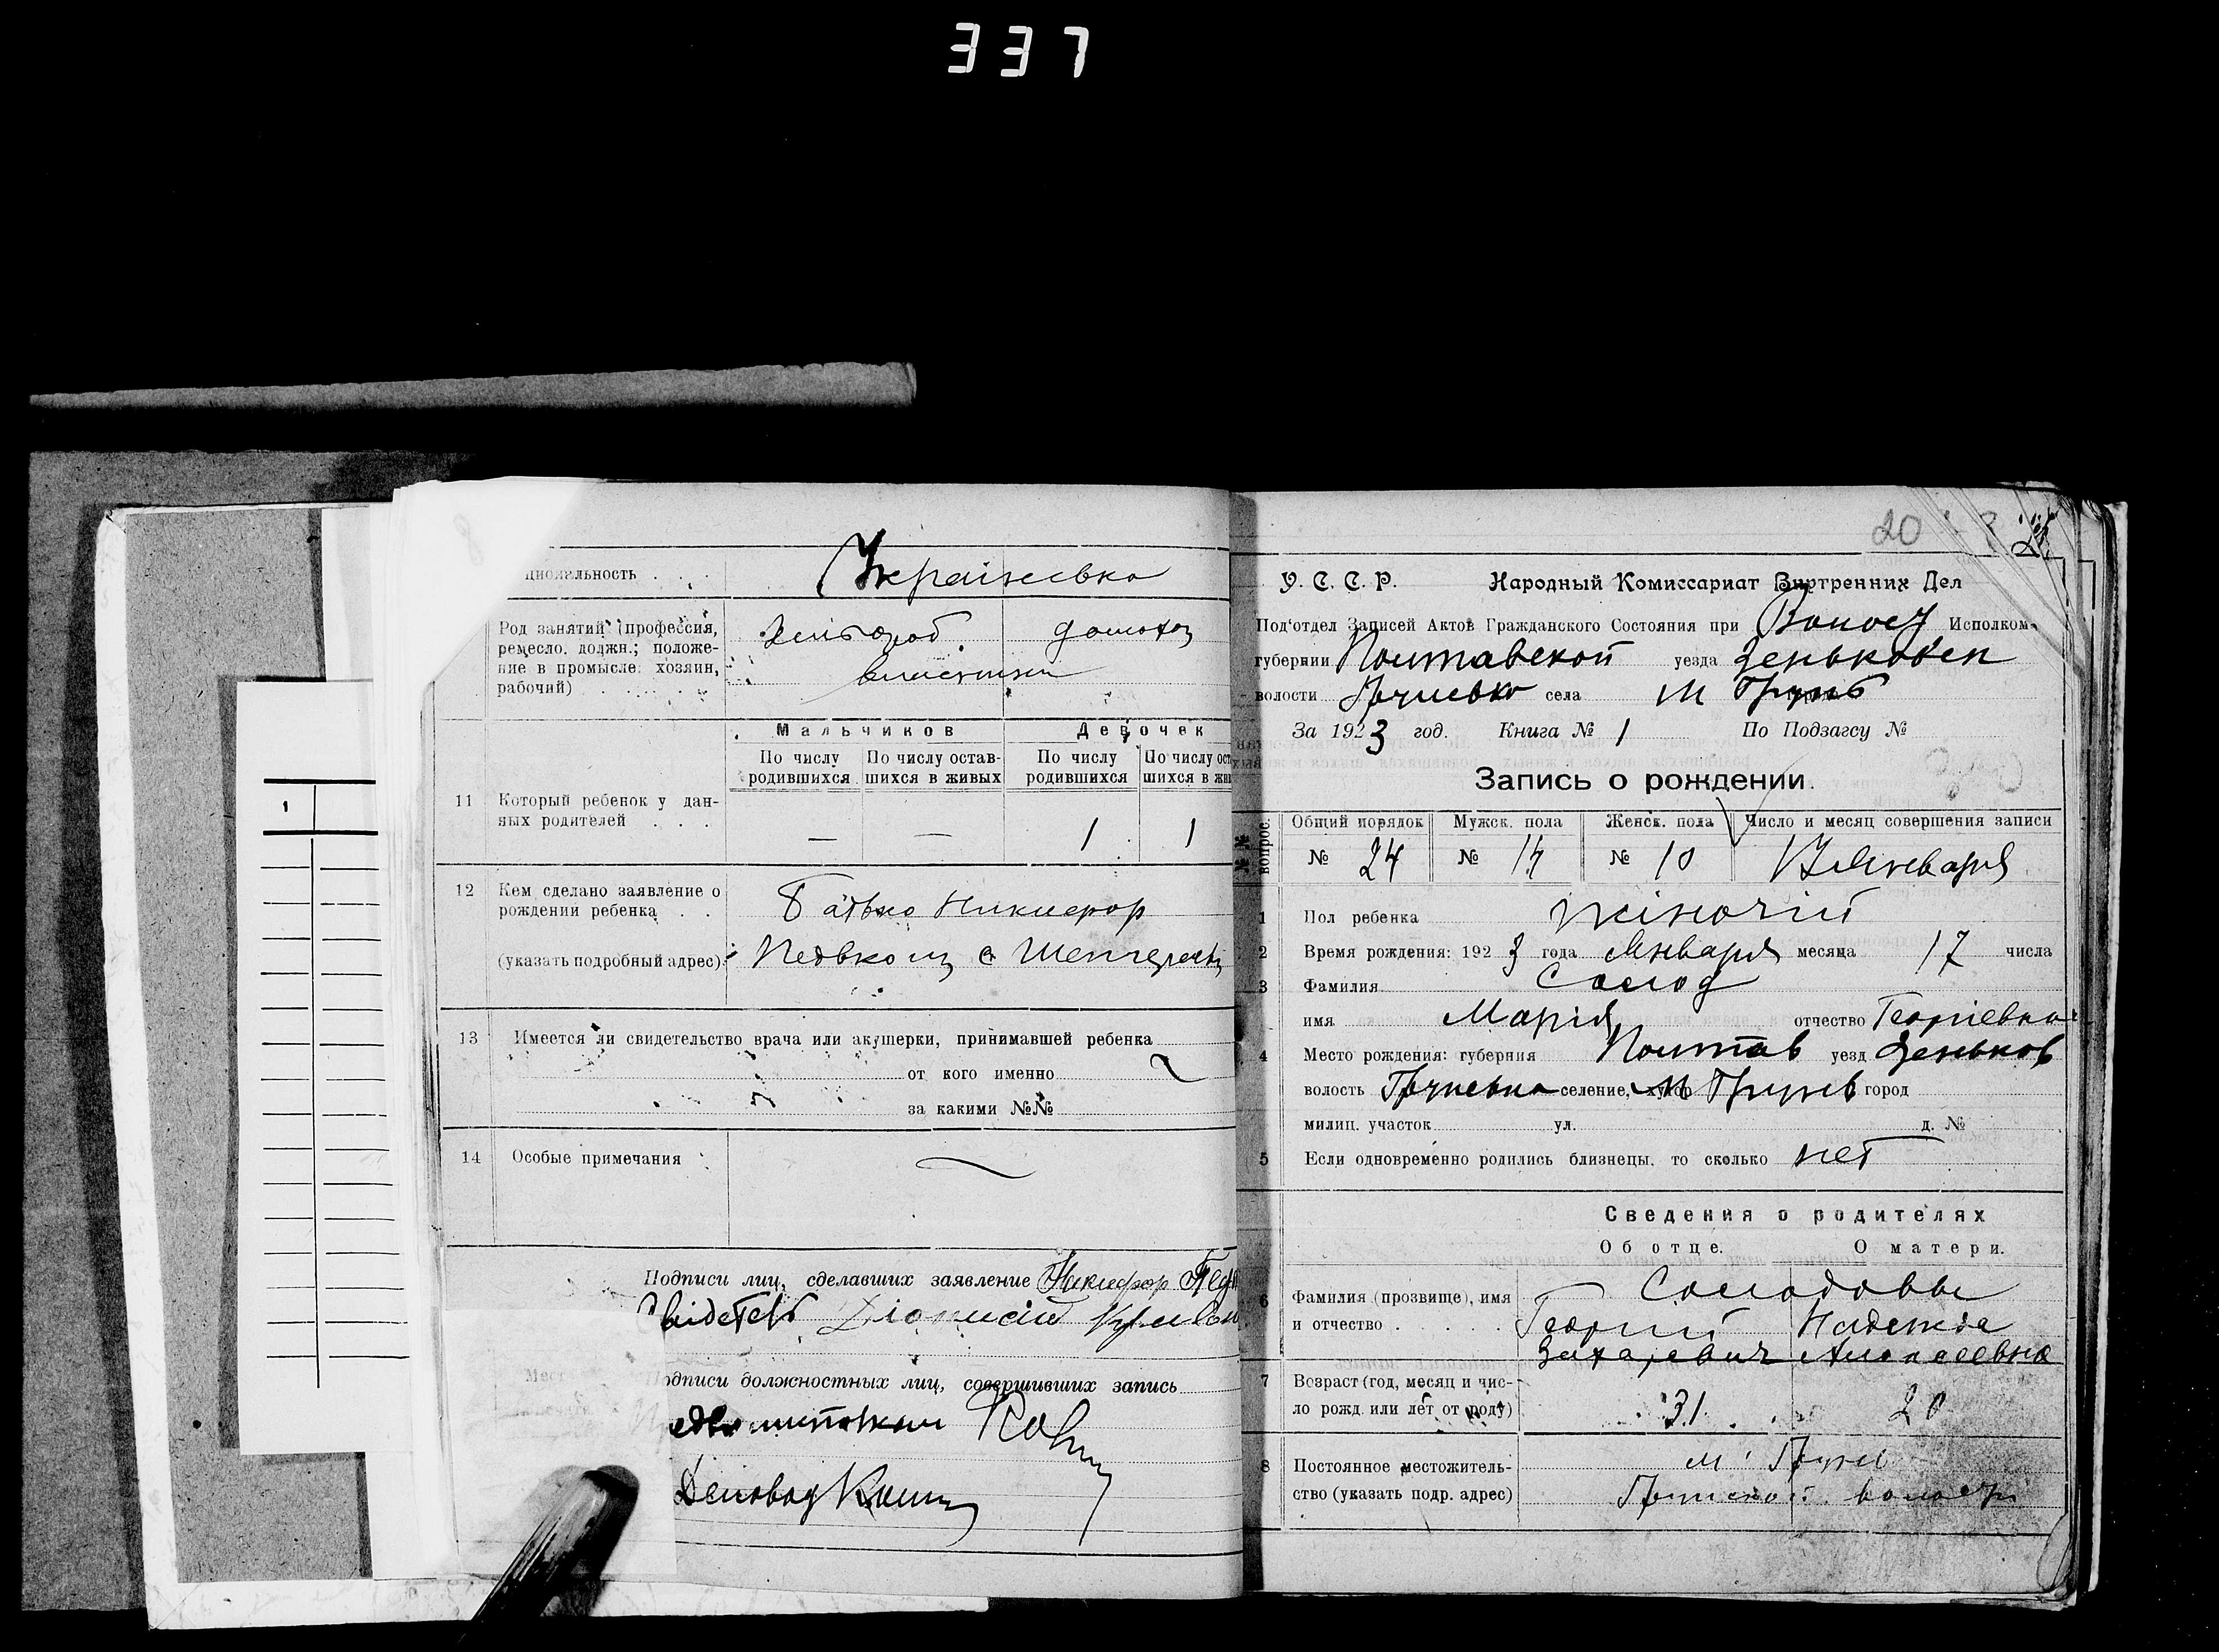 337
циональность Українсвка
Род занятий (профессия, Хлібороб домохоз
ремесло. должн.; положе-
ние в промысле: хозяин,
рабочий)
Мальчиков Девочек
По числу родившихся По числу остав-шихся в живых По числу родившихся По числу ост шихся в жи
11 Который ребенок у дан-
ных родителей — — 1 1
12 Кем сделано заявление о Батько Никифор
рождении ребенка
(указать подробный адрес)
13 Имеется ли свидетельство врача или акушерки, принимавшей ребенка
от кого именно
за какими №№
14 Особые примечания
Подписи лиц, сделавших заявление Никифор
Свідетель Діонисій
Подписи должностных лиц, совершивших запись
Деловод
20
У. С. С. Р. Народный Комиссариат Внутренних Дел
Под'отдел Записей Актов Гражданского Состояния при Волост Исполком.
губернии Полтавской уезда Зеньковск
волости Грунсько села М Грунь
За 1923 год. Книга № 1 По Подзагсу №
Запись о рождении.
№№ вопрос. Общий порядок Мужск. пола Женск. пола Число и месяц совершения записи
№ 24 № 14 № 10 Января
1 Пол ребенка жіночій
2 Время рождения: 1923 года Января месяца 17 числа
3 Фамилия Солод
имя Марія отчество Георгіевна
4 Место рождения: губерния Полтав уезд Зеньков
волость Грунська селение, хутор М Грунь город
милиц. участок ул. д. №
5 Если одновременно родились близнецы, то сколько нет
Сведения о родителях
Об отце. О матери.
6 Фамилия (прозвище), имя Солодовы
и отчество Георгий Надежда
Захаревич Алексеевна
7 Возраст (год, месяц и чис-
ло рожд. или лет от роду) 31 20
8 Постоянное местожитель- м. Грунь
ство (указать подр. адрес) Грунской волости